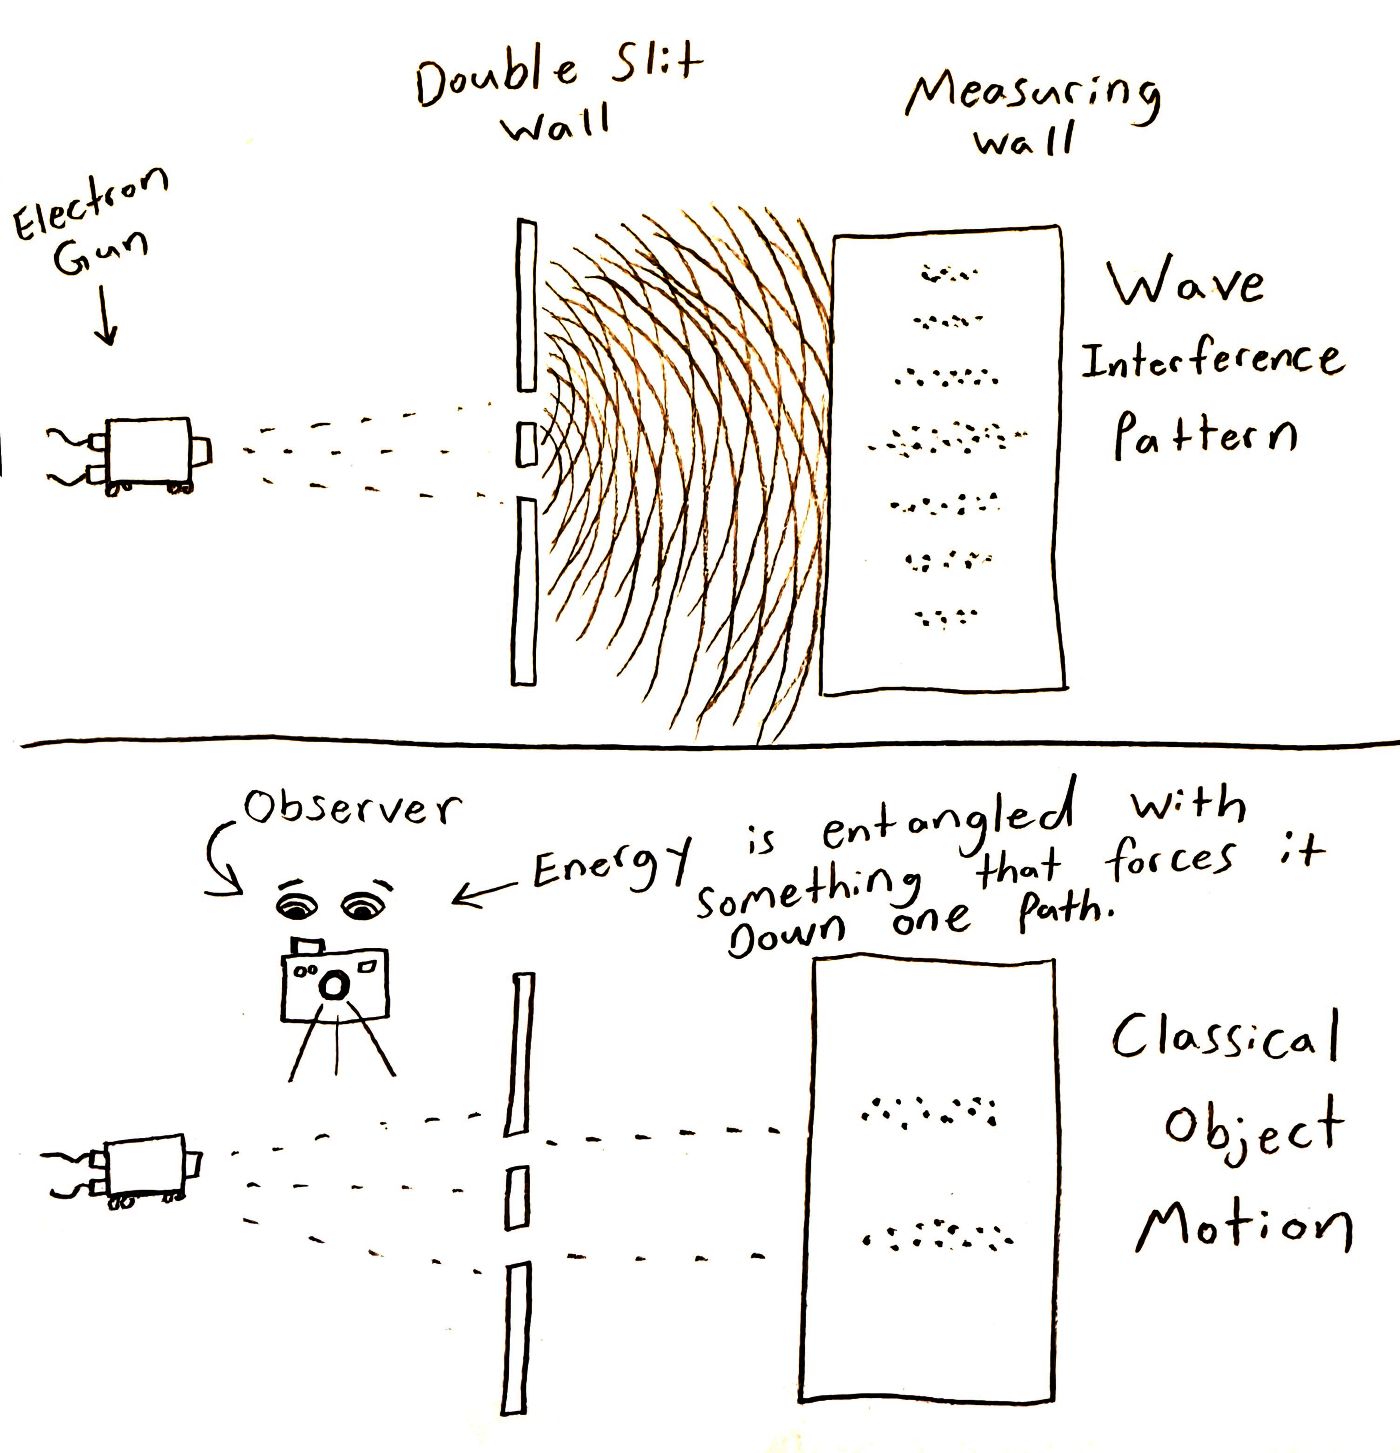 Double Slit
Wall
Measuring
Wall
Electron
Gun
Wave
Interference
Pattern
Observer
Energy is entangled with
something that forces it
Down one path.
Classical
Object
Motion